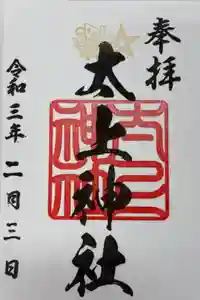 奉拝
大上神社
令和三年二月三日